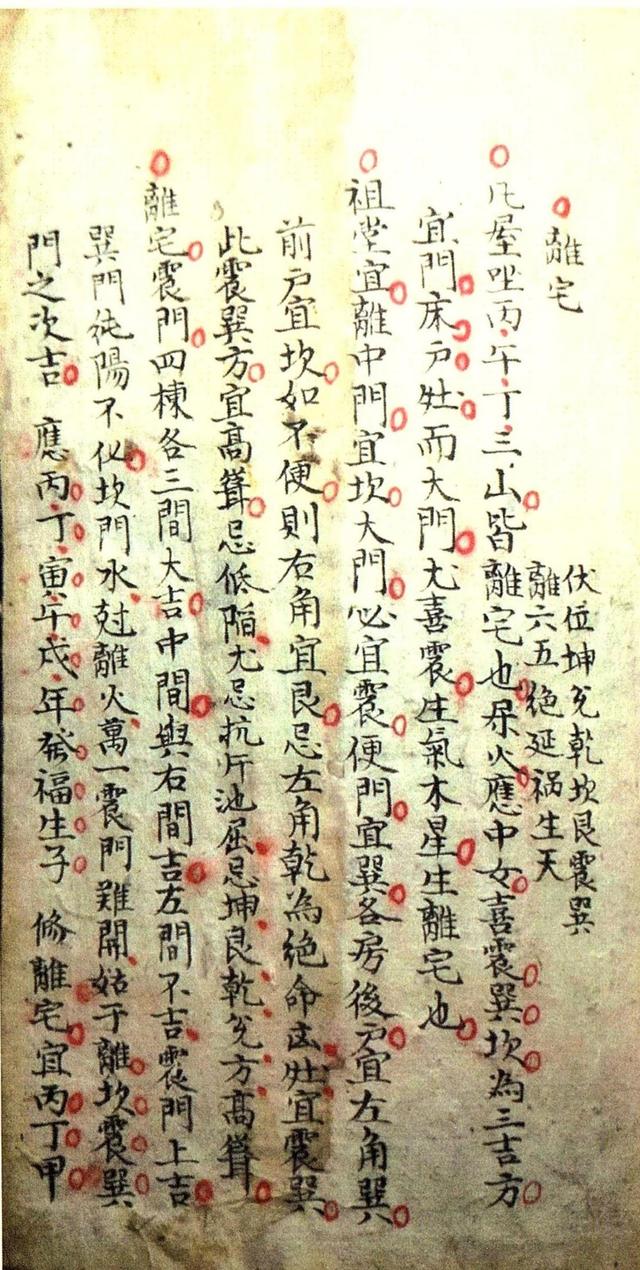 離宅
伏位坤兑乾坎艮震巽
離六五絶延禍生天
凡屋坐丙午丁三山皆離宅也屬火應中女喜震巽坎為三吉方
宜門床户灶而大門尤喜震生氣木星生離宅也
祖堂宜離中門宜坎大門必宜震便門宜巽各房後户宜左角巽
前户宜坎如不便則右角宜艮忌左角乾為絶命凶灶宜震巽
此震巽方宜高聳忌低陷尤忌坑厠池屈忌坤艮乾兑方高聳
離宅震門四棟各三間大吉中間與右間吉左間不吉震門上吉
巽門純陽不化坎門水尅離火萬一震門難開姑于離坎震巽
門之次吉 應丙丁寅午戌年發福生子 修離宅宜丙丁甲